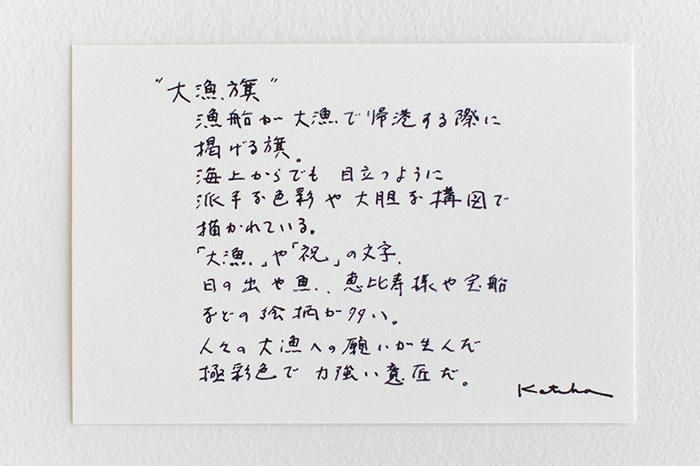 "大漁旗"
漁船が大漁で帰港する際に
掲げる旗。
海上からでも目立つように
派手な色彩や大胆な構図で
描かれている。
「大漁」や「祝」の文字、
日の出や魚、恵比寿様や宝船
などの絵柄が多い。
人々の大漁への願いが生んだ
極彩色で力強い意匠だ。